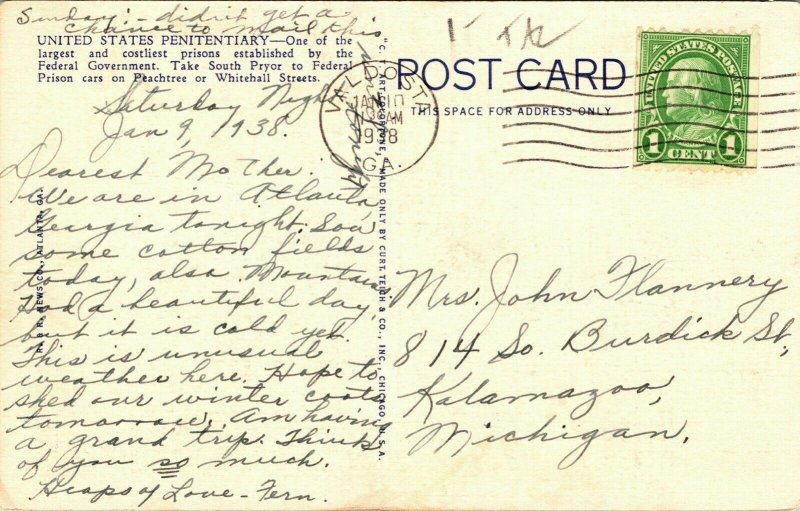 Sunday:- didn't get a
chance to mail this
UNITED STATES PENITENTIARY—One of the
largest and costliest prisons established by the
Federal Government. Take South Pryor to Federal
Prison cars on Peachtree or Whitehall Streets.
Saturday Night
Jan 9, 1938.
Dearest Mother:
We are in Atlanta,
Georgia tonight. Saw
some cotton fields
today, also Mountains
Had a beautiful day,
but it is cold yet.
This is unusual
weather here. Hope to
shed our winter coats
tomorrow. Am having
a grand trip. Think
of you so much.
Heaps of Love - Fern.
R. NEWS CO., ATLANTA, GA.
"C. T. ART-COLORTONE" MADE ONLY BY CURT TEICH & CO., INC., CHICAGO, U.S.A.
POST CARD
THIS SPACE FOR ADDRESS ONLY
VALDOSTA
JAN 10
AM
1938
GA.
UNITED STATES POSTAGE
1 CENT 1
Mrs. John Flannery
814 So. Burdick St.,
Kalamazoo,
Michigan.